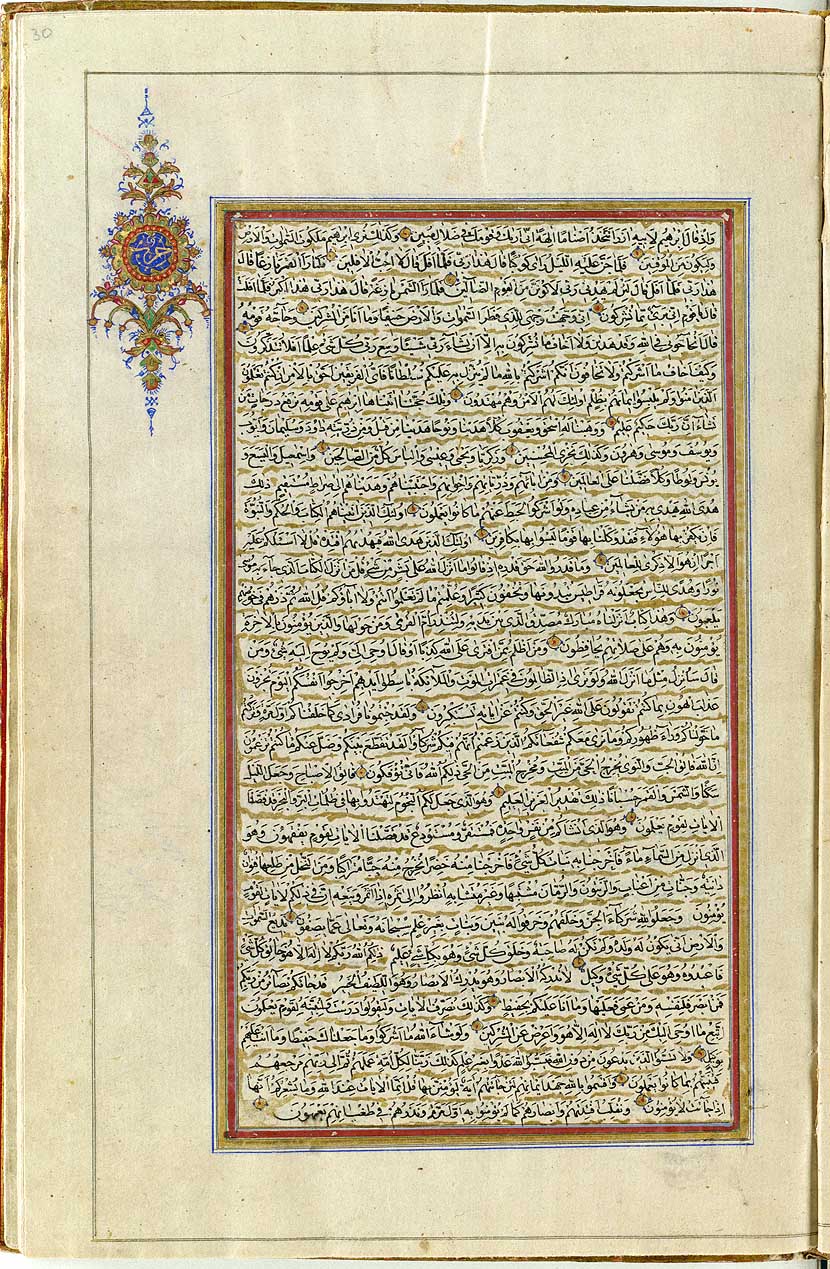 واذ قال ابرهيم لابيه ازر اتتخذ اصناما الهة اني اريك وقومك في ضلال مبين وكذلك نري ابرهيم ملكوت السموات والارض
وليكون من الموقنين فلما جن عليه الليل راى كوكبا قال هذا ربي فلما افل قال لا احب الافلين فلما را القمر بازغا قال
هذا ربي فلما افل قال لئن لم يهدني ربي لاكونن من القوم الضالين فلما را الشمس بازغة قال هذا ربي هذا اكبر فلما افلت
قال يا قوم اني برئ مما تشركون اني وجهت وجهي للذي فطر السموات والارض حنيفا وما انا من المشركين وحاجه قومه
قال اتحاجوني في الله وقد هدين ولا اخاف ما تشركون به الا ان يشاء ربي شيئا وسع ربي كل شئ علما افلا تتذكرون
وكيف اخاف ما اشركتم ولا تخافون انكم اشركتم بالله ما لم ينزل به عليكم سلطانا فاي الفريقين احق بالامن ان كنتم تعلمون
الذين امنوا ولم يلبسوا ايمانهم بظلم اولئك لهم الامن وهم مهتدون وتلك حجتنا اتيناها ابرهيم على قومه نرفع درجات من
نشاء ان ربك حكيم عليم ووهبنا له اسحق ويعقوب كلا هدينا ونوحا هدينا من قبل ومن ذريته داود وسليمان وايوب
ويوسف وموسى وهرون وكذلك نجزي المحسنين وزكريا ويحيى وعيسى والياس كل من الصالحين واسمعيل واليسع و
يونس ولوطا وكلا فضلنا على العالمين ومن ابائهم وذرياتهم واخوانهم واجتبيناهم وهديناهم الى صراط مستقيم ذلك
هدى الله يهدي به من يشاء من عباده ولو اشركوا لحبط عنهم ما كانوا يعملون اولئك الذين اتيناهم الكتاب والحكم والنبوة
فان يكفر بها هؤلاء فقد وكلنا بها قوما ليسوا بها بكافرين اولئك الذين هدى الله فبهديهم اقتده قل لا اسئلكم عليه
اجرا ان هو الا ذكرى للعالمين وما قدروا الله حق قدره اذ قالوا ما انزل الله على بشر من شئ قل من انزل الكتاب الذي جاء به موسى
نورا وهدى للناس تجعلونه قراطيس تبدونها وتخفون كثيرا وعلمتم ما لم تعلموا انتم ولا اباؤكم قل الله ثم ذرهم في خوضهم
يلعبون وهذا كتاب انزلناه مبارك مصدق الذي بين يديه ولتنذر ام القرى ومن حولها والذين يؤمنون بالاخرة
يؤمنون به وهم على صلاتهم يحافظون ومن اظلم ممن افترى على الله كذبا او قال اوحي الي ولم يوح اليه شئ ومن
قال سانزل مثل ما انزل الله ولو ترى اذ الظالمون في غمرات الموت والملائكة باسطوا ايديهم اخرجوا انفسكم اليوم تجزون
عذاب الهون بما كنتم تقولون على الله غير الحق وكنتم عن اياته تستكبرون ولقد جئتمونا فرادى كما خلقناكم اول مرة وتركتم
ما خولناكم وراء ظهوركم وما نرى معكم شفعائكم الذين زعمتم انهم فيكم شركاؤا لقد تقطع بينكم وضل عنكم ما كنتم تزعمون
ان الله فالق الحب والنوى يخرج الحي من الميت ومخرج الميت من الحي ذلكم الله فانى تؤفكون فالق الاصباح وجعل الليل
سكنا والشمس والقمر حسبانا ذلك تقدير العزيز العليم وهو الذي جعل لكم النجوم لتهتدوا بها في ظلمات البر والبحر قد فصلنا
الايات لقوم يعلمون وهو الذي انشاكم من نفس واحدة فمستقر ومستودع قد فصلنا الايات لقوم يفقهون وهو
الذي انزل من السماء ماء فاخرجنا به نبات كل شئ فاخرجنا منه خضرا نخرج منه حبا متراكبا ومن النخل من طلعها قنوان
دانية وجنات من اعناب والزيتون والرمان مشتبها وغير متشابه انظروا الى ثمره اذا اثمر وينعه ان في ذلكم لايات لقوم
يؤمنون وجعلوا لله شركاء الجن وخلقهم وخرقوا له بنين وبنات بغير علم سبحانه وتعالى عما يصفون بديع السموات
والارض انى يكون له ولد ولم تكن له صاحبة وخلق كل شئ وهو بكل شئ عليم ذلكم الله ربكم لا اله الا هو خالق كل شئ
فاعبدوه وهو على كل شئ وكيل لا تدركه الابصار وهو يدرك الابصار وهو اللطيف الخبير قد جاءكم بصائر من ربكم
فمن ابصر فلنفسه ومن عمى فعليها وما انا عليكم بحفيظ وكذلك نصرف الايات وليقولوا درست ولنبينه لقوم يعلمون
اتبع ما اوحي اليك من ربك لا اله الا هو واعرض عن المشركين ولو شاء الله ما اشركوا وما جعلناك عليهم حفيظا وما انت عليهم
بوكيل ولا تسبوا الذين يدعون من دون الله فيسبوا الله عدوا بغير علم كذلك زينا لكل امة عملهم ثم الى ربهم مرجعهم
فينبئهم بما كانوا يعملون واقسموا بالله جهد ايمانهم لئن جاءتهم اية ليؤمنن بها قل انما الايات عند الله وما يشعركم انها
اذا جاءت لا يؤمنون ونقلب افئدتهم وابصارهم كما لم يؤمنوا به اول مرة ونذرهم في طغيانهم يعمهون